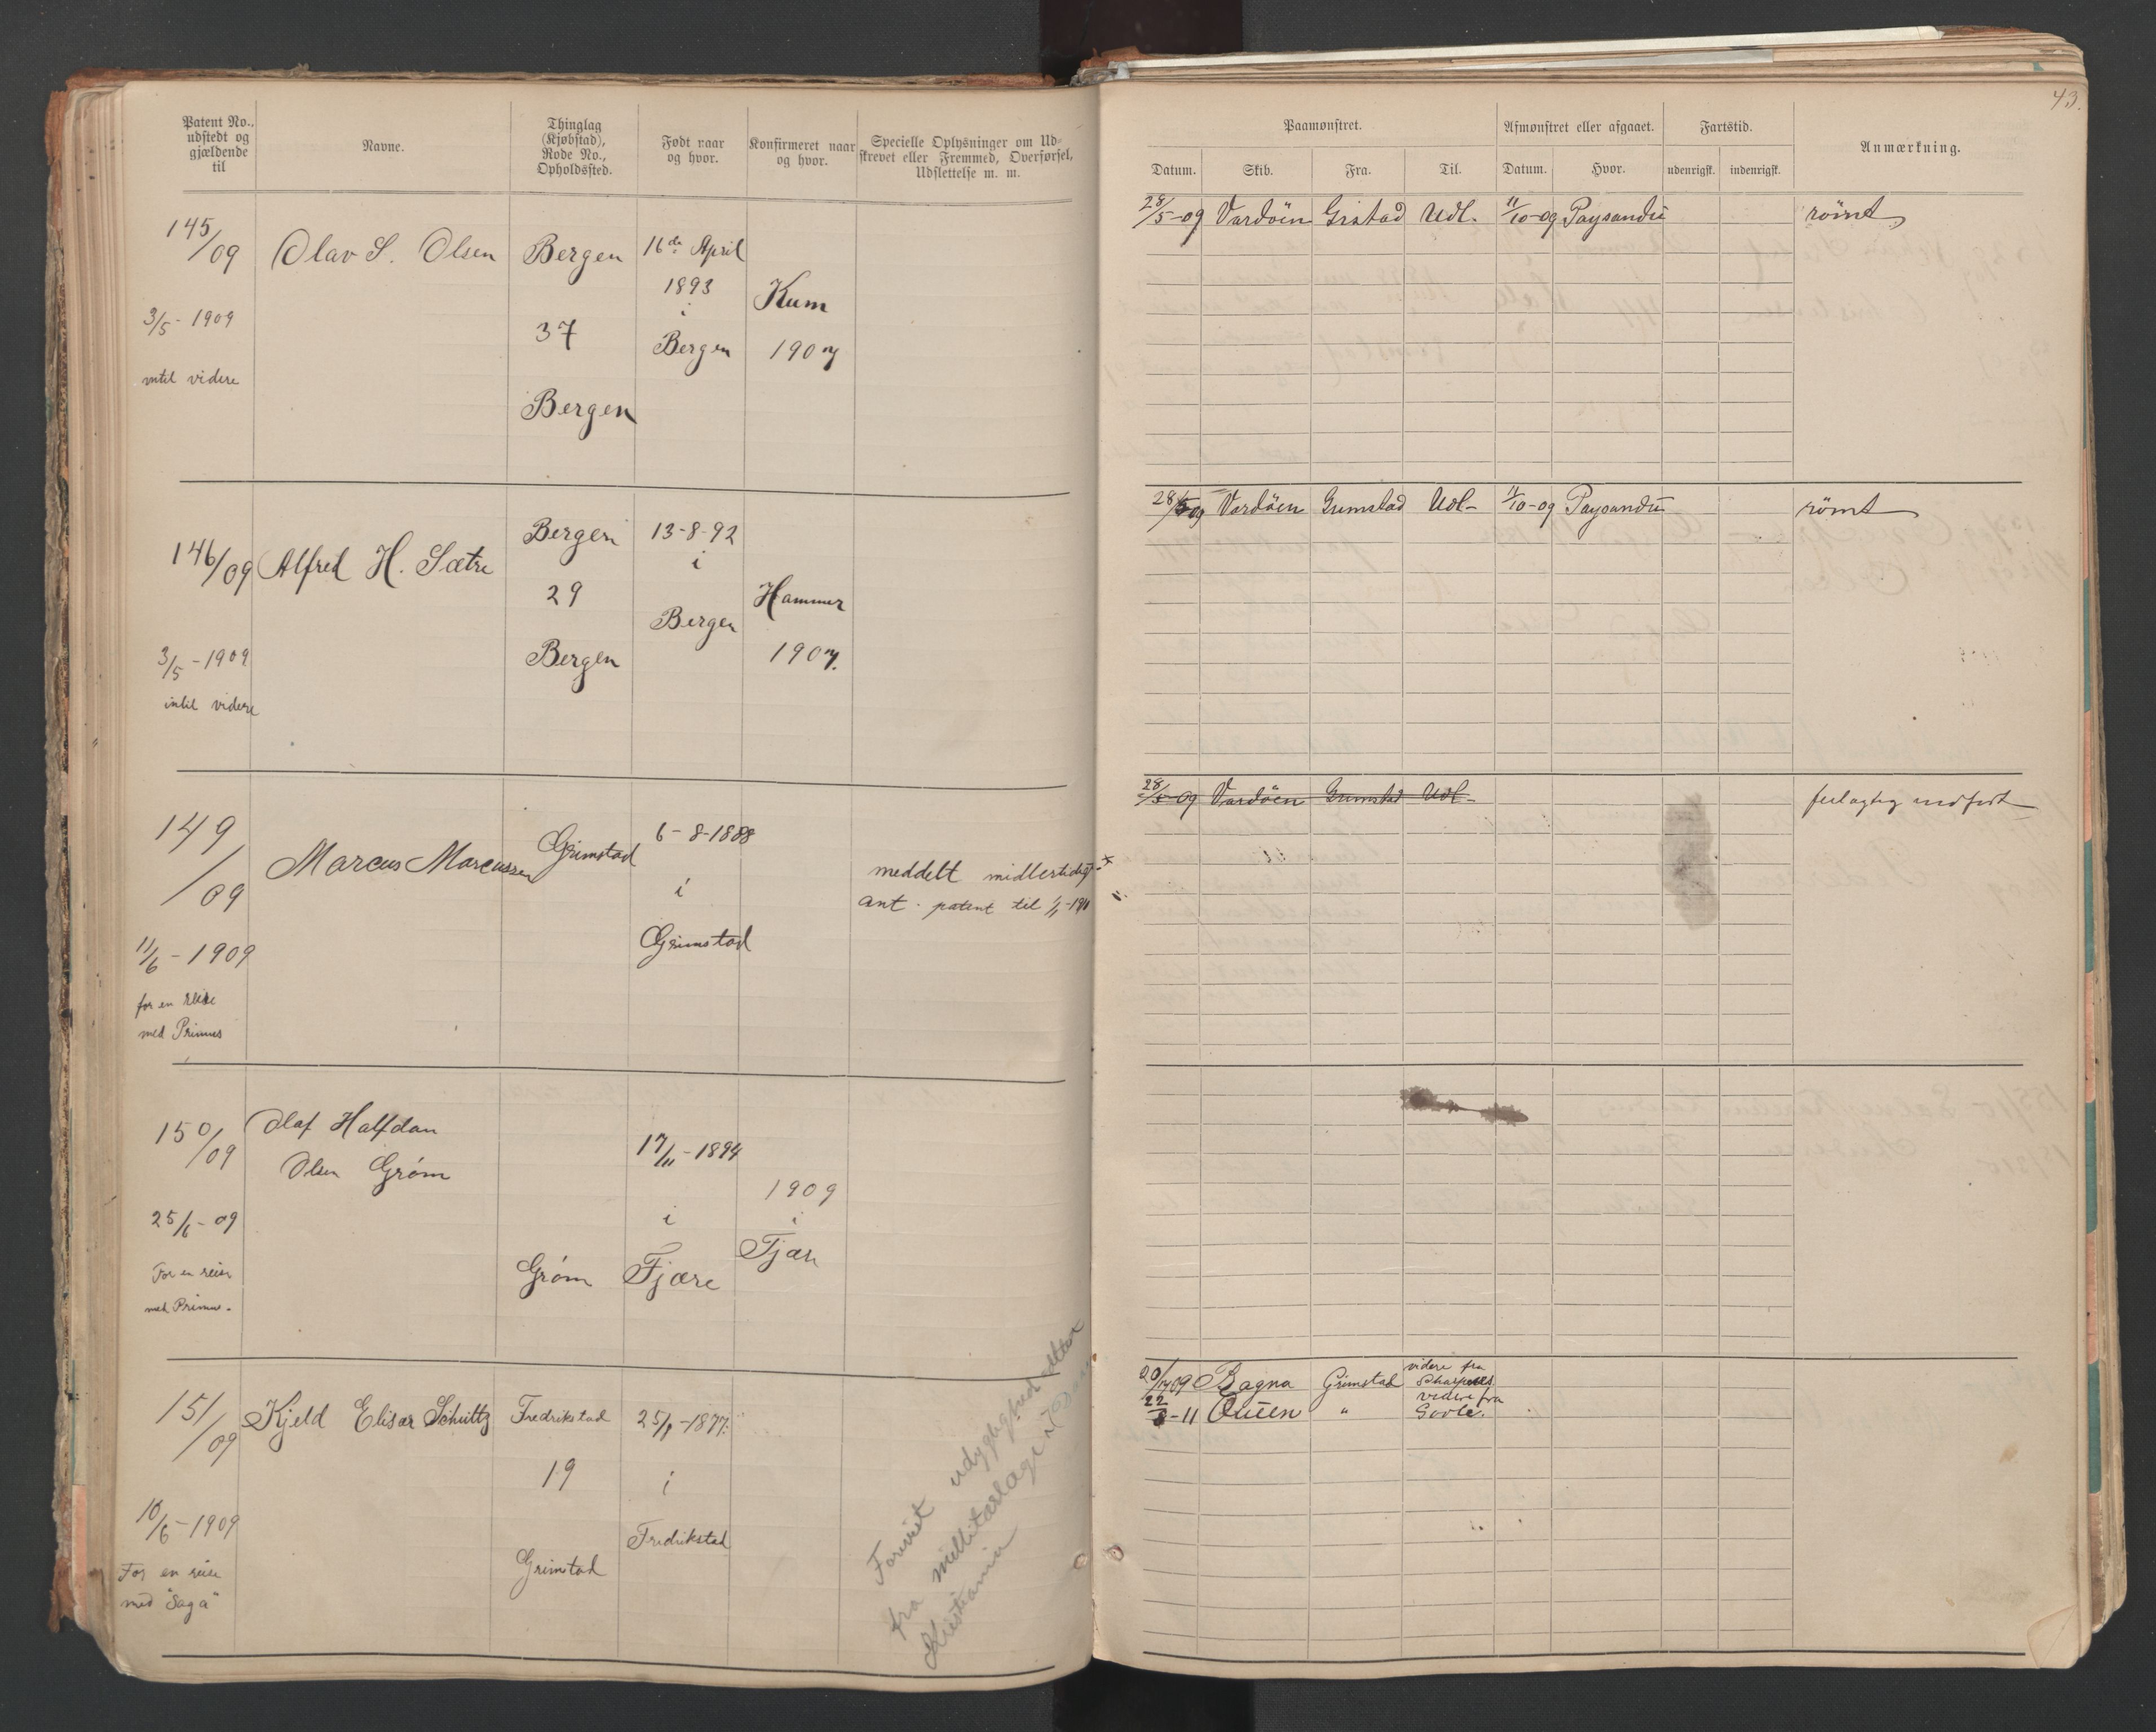 43.
Patent No., udstedt og gjældende til
Navne.
Thinglag (Kjøbstad), Rode No., Opholdssted.
Født naar og hvor.
Konfirmeret naar og hvor.
Specielle Oplysninger om Udskrevet eller Fremmed, Overførsel, Udslettelse m. m.
Paamønstret.
Afmønstret eller afgaaet.
Fartstid.
Anmærkning.
Datum.
Skib.
Fra.
Til.
Datum.
Hvor.
udenrigsk.
indenrigsk.
145/09
3/5 - 1909
intil videre
Olav S. Olsen
Bergen
37
Bergen
16de April
1893
i
Bergen
Kum
1907
28/5-09 Vardöen Gristad Udl. 11/10-09 Paysandú römt
146/09
3/5 - 1909
intil videre
Alfred H. Sætre
Bergen
29
Bergen
13-8-92
i
Bergen
Hammer
1907.
28/5 09 Vardöen Grimstad Udl- 11/10-09 Paysandú römt
149/09
11/6 - 1909
for en reise
med Primus
Marcus Marcussen
Grimstad
6-8-1888
i
Grimstad
meddelt midlertidigt
ant. patent til 1/1-1910
28/5-09 Vardöen Grimstad Udl- feilagtig indført
150/09
25/6- 09
For en reise
med Primus.
Olaf Halfdan
Olsen Grøm
Grøm
17/11-1894
i
Fjære
1909
i
Fjære
151/09
10/6-1909
For en reise
med "Saga"
Kjeld Elisar Schultz
Fredrikstad
19
Grimstad
25/1-1877.
i
Fredrikstad
fra millitærlæge i
Kristiania
Bagna Grimstad videre fra
22/8-11 Queen " videre fra
Goole.